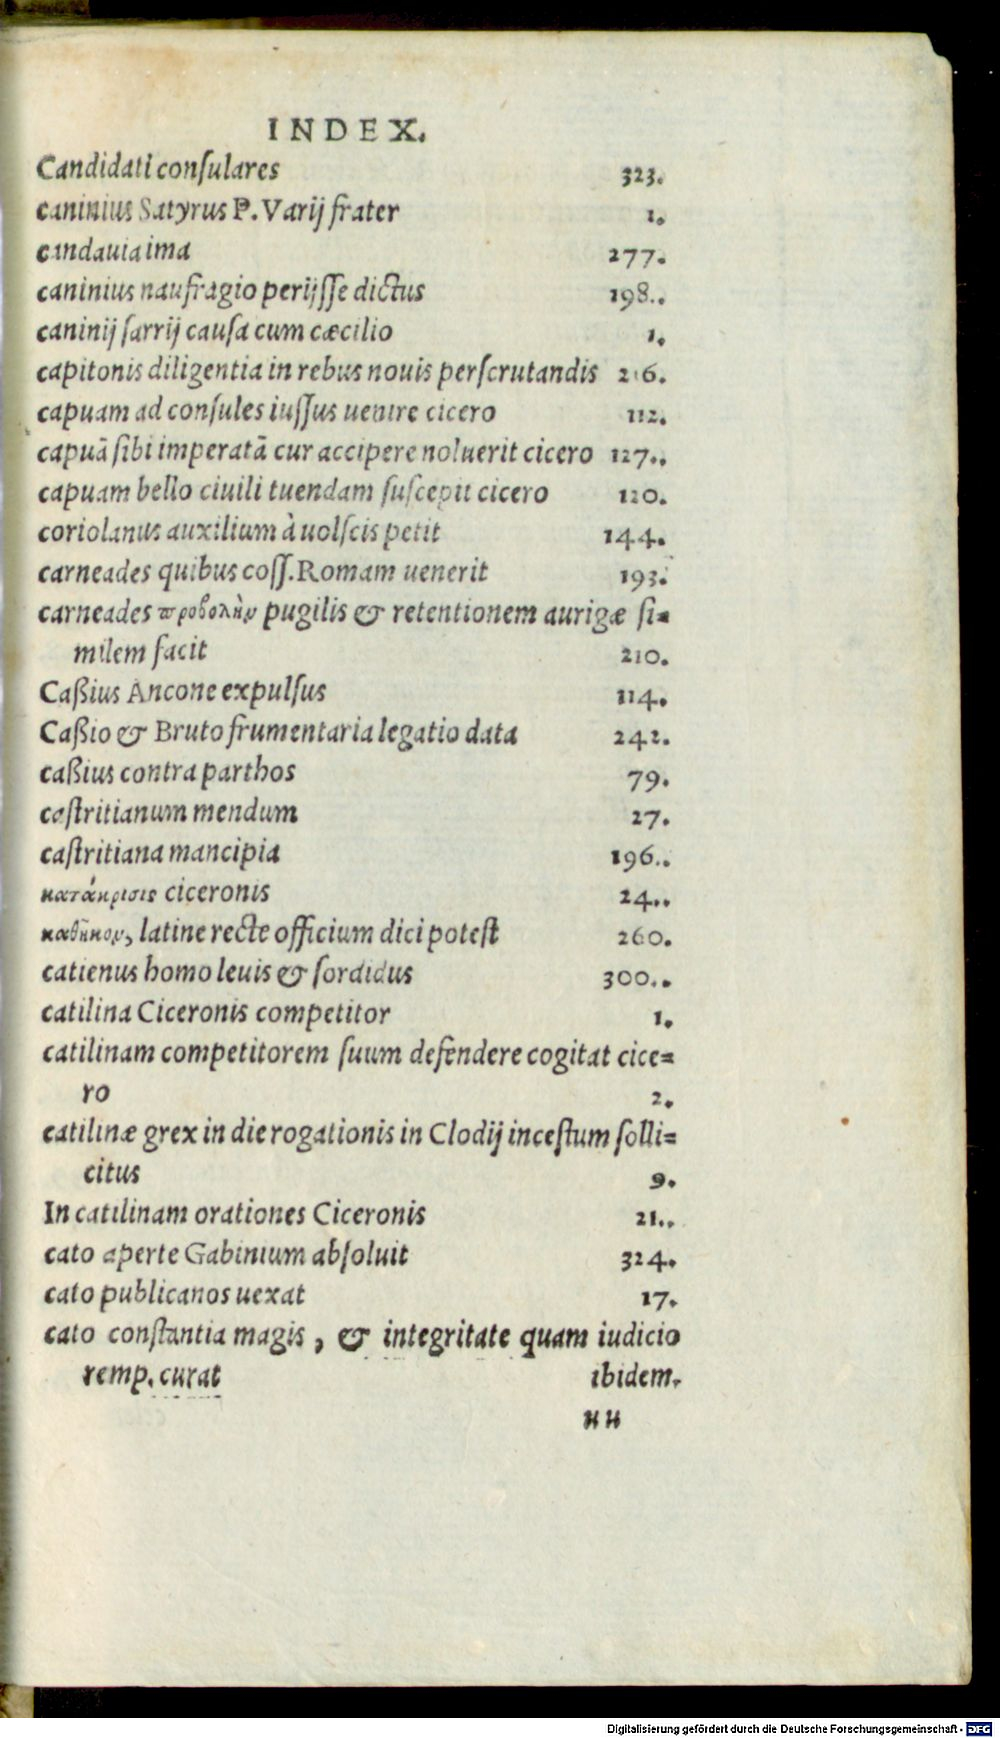 INDEX.
Candidati conſulares 323.
caninius Satyrus P. Varij frater 1.
candauia ima 277.
caninius naufragio perijſſe dictus 198..
caninij ſarrij cauſa cum cæcilio 1.
capitonis diligentia in rebus nouis perſcrutandis 216.
capuam ad conſules iuſſus uenire cicero 112.
capuā ſibi imperatā cur accipere noluerit cicero 127..
capuam bello ciuili tuendam ſuſcepit cicero 120.
coriolanus auxilium à uolſcis petit 144.
carneades quibus coſſ. Romam uenerit 193.
carneades προβολὴν pugilis & retentionem aurigæ ſi=
milem facit 210.
Caßius Ancone expulſus 114.
Caßio & Bruto frumentaria legatio data 242.
caßius contra parthos 79.
caſtritianum mendum 27.
caſtritiana mancipia 196..
κατάκρισις ciceronis 24..
καθῆκον, latine recte officium dici poteſt 260.
catienus homo leuis & ſordidus 300..
catilina Ciceronis competitor 1.
catilinam competitorem ſuum defendere cogitat cice=
ro 2.
catilinæ grex in die rogationis in Clodij inceſtum ſolli=
citus 9.
In catilinam orationes Ciceronis 21..
cato aperte Gabinium abſoluit 324.
cato publicanos uexat 17.
cato conſtantia magis, & integritate quam iudicio
remp. curat ibidem.
HH
Digitalisierung gefördert durch die Deutsche Forschungsgemeinschaft - DFG